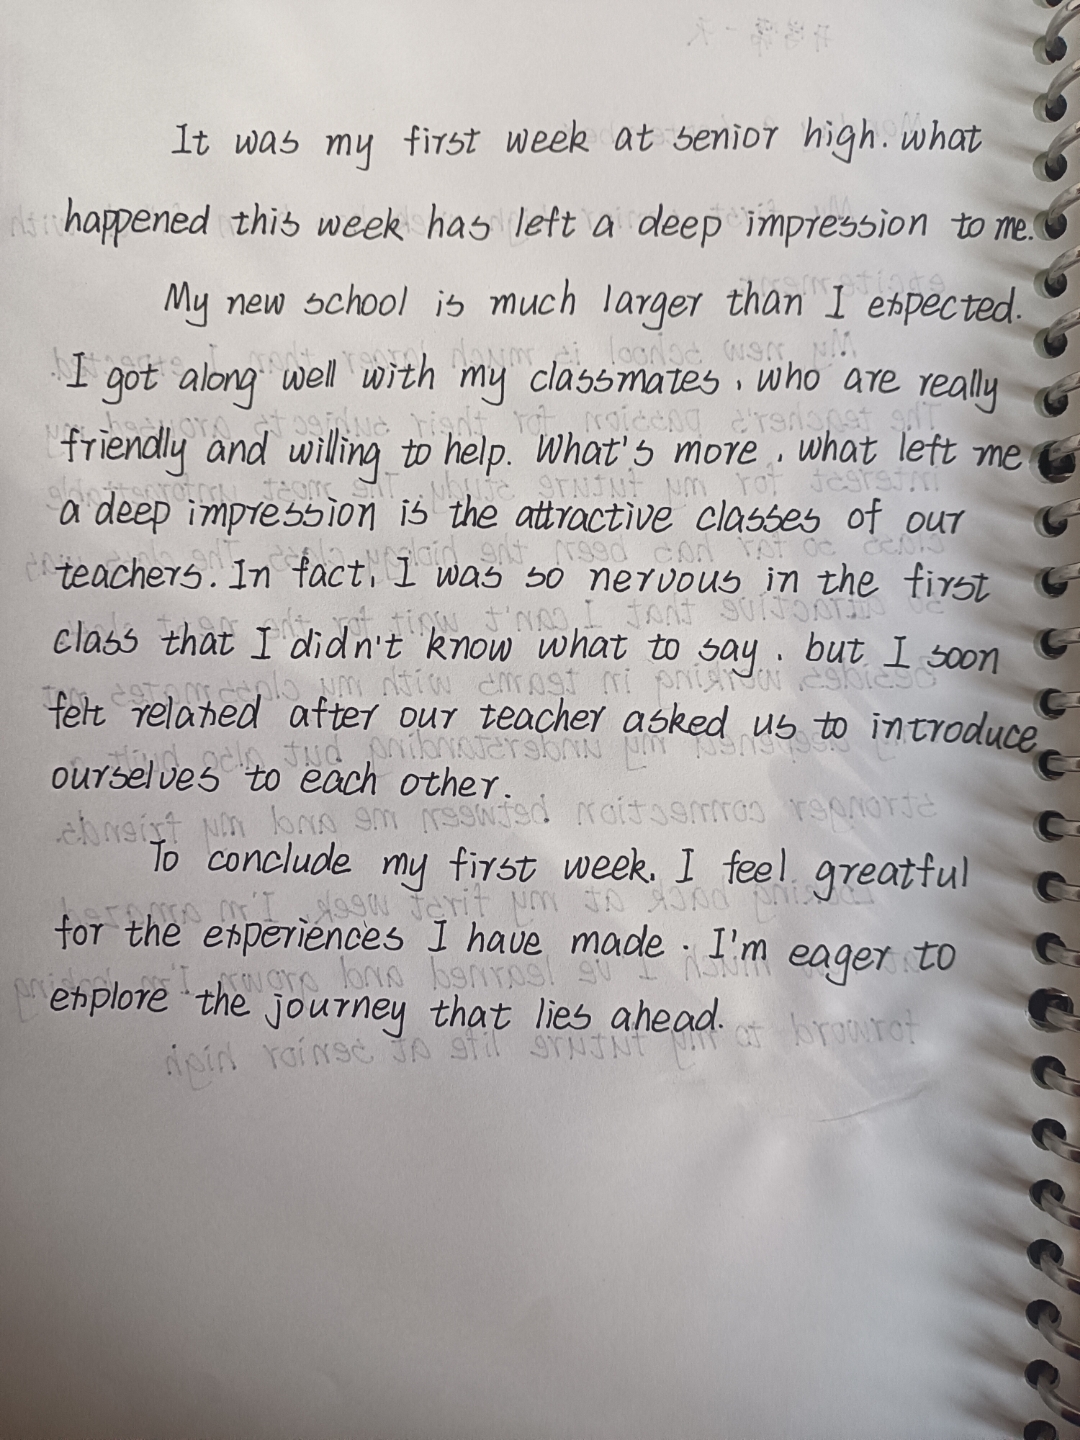 It was my first week at senior high. what
happened this week has left a deep impression to me.
My new school is much larger than I expected.
I got along well with my classmates, who are really
friendly and willing to help. What's more, what left me
a deep impression is the attractive classes of our
teachers. In fact, I was so nervous in the first
class that I didn't know what to say, but I soon
felt relaxed after our teacher asked us to introduce
ourselves to each other.
To conclude my first week, I feel greatful
for the experiences I have made. I'm eager to
explore the journey that lies ahead.